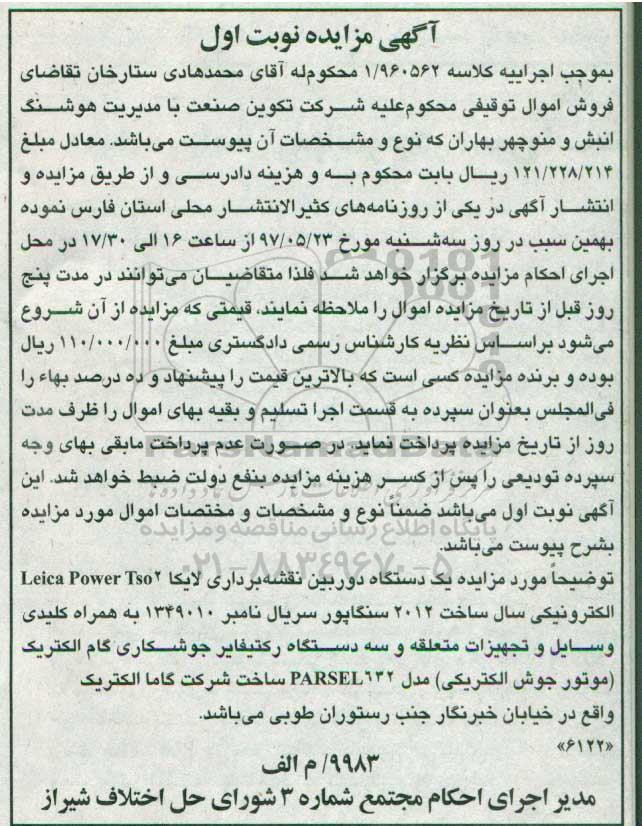 آگهی مزایده نوبت اول
بموجب اجراییه کلاسه ۱/۹۶۰۵۶۲ محکوم‌له آقای محمدهادی ستارخان تقاضای
فروش اموال توقیفی محکوم‌علیه شرکت تکوین صنعت با مدیریت هوشنگ
انبش و منوچهر بهاران که نوع و مشخصات آن پیوست می‌باشد. معادل مبلغ
۱۲۱/۲۲۸/۲۱۴ ریال بابت محکوم به و هزینه دادرسی و از طریق مزایده و
انتشار آگهی در یکی از روزنامه‌های کثیرالانتشار محلی استان فارس نموده
بهمین سبب در روز سه‌شنبه مورخ ۹۷/۰۵/۲۳ از ساعت ۱۶ الی ۱۷/۳۰ در محل
اجرای احکام مزایده برگزار خواهد شد فلذا متقاضیان می‌توانند در مدت پنج
روز قبل از تاریخ مزایده اموال را ملاحظه نمایند، قیمتی که مزایده از آن شروع
می‌شود براساس نظریه کارشناس رسمی دادگستری مبلغ ۱۱۰/۰۰۰/۰۰۰ ریال
بوده و برنده مزایده کسی است که بالاترین قیمت را پیشنهاد و ده درصد بهاء را
فی‌المجلس بعنوان سپرده به قسمت اجرا تسلیم و بقیه بهای اموال را ظرف مدت
روز از تاریخ مزایده پرداخت نماید. در صورت عدم پرداخت مابقی بهای وجه
سپرده تودیعی را پس از کسر هزینه مزایده بنفع دولت ضبط خواهد شد. این
آگهی نوبت اول می‌باشد ضمناً نوع و مشخصات و مختصات اموال مورد مزایده
بشرح پیوست می‌باشد.
توضیحاً مورد مزایده یک دستگاه دوربین نقشه‌برداری لایکا Leica Power Tso۲
الکترونیکی سال ساخت ۲۰۱۲ سنگاپور سریال نامبر ۱۳۴۹۰۱۰ به همراه کلیدی
وسایل و تجهیزات متعلقه و سه دستگاه رکتیفایر جوشکاری گام الکتریک
(موتور جوش الکتریکی) مدل PARSEL۶۳۲ ساخت شرکت گاما الکتریک
واقع در خیابان خبرنگار جنب رستوران طوبی می‌باشد.
«۶۱۲۲»
۹۹۸۳/ م الف
مدیر اجرای احکام مجتمع شماره ۳ شورای حل اختلاف شیراز
ParsNamadData
پایگاه اطلاع رسانی مناقصه و مزایده
۰۲۱-۸۸۳۴۹۶۷۰-۵